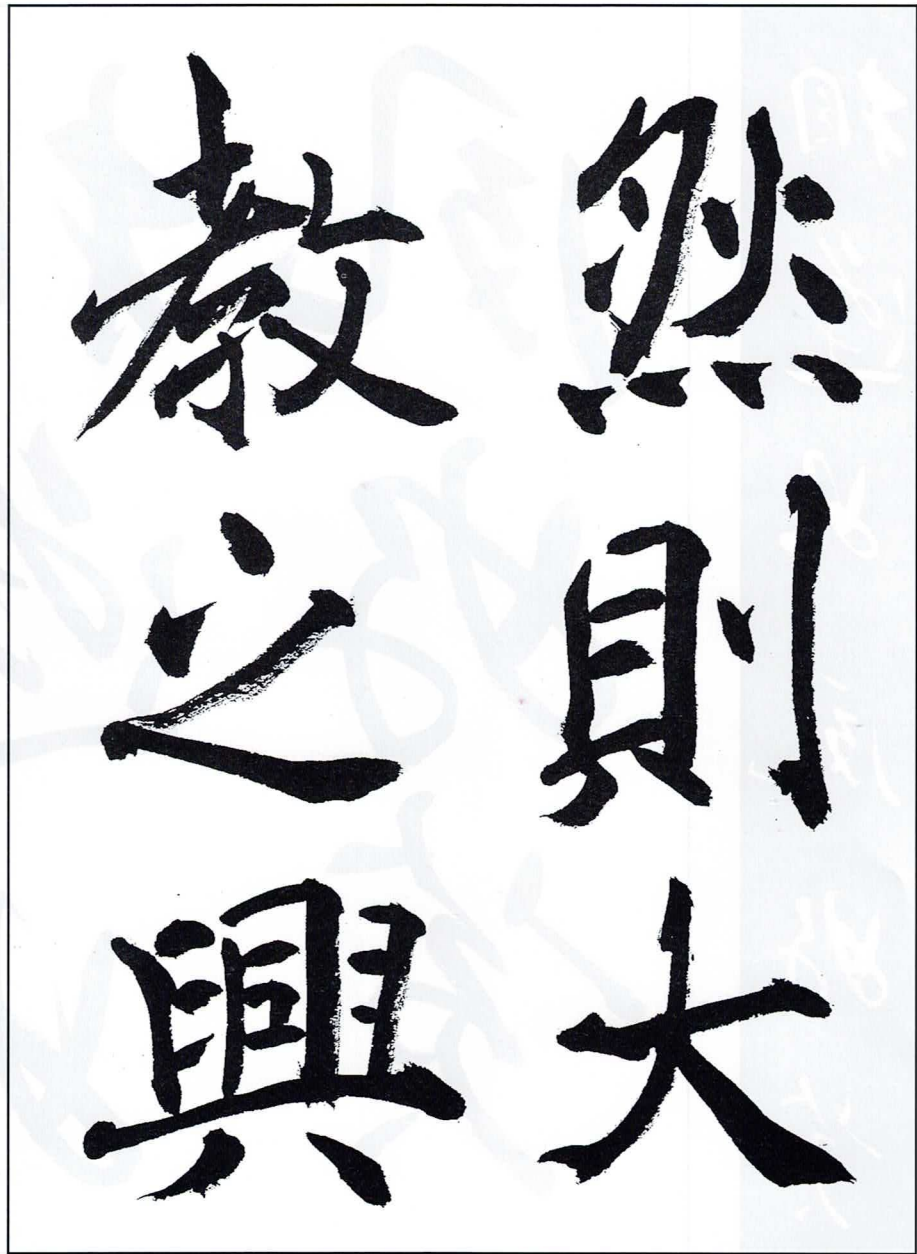 然則大
教之興